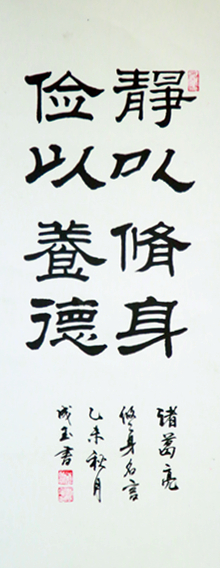 靜以脩身
俭以養德
诸葛亮
修身名言
乙未秋月
成玉書